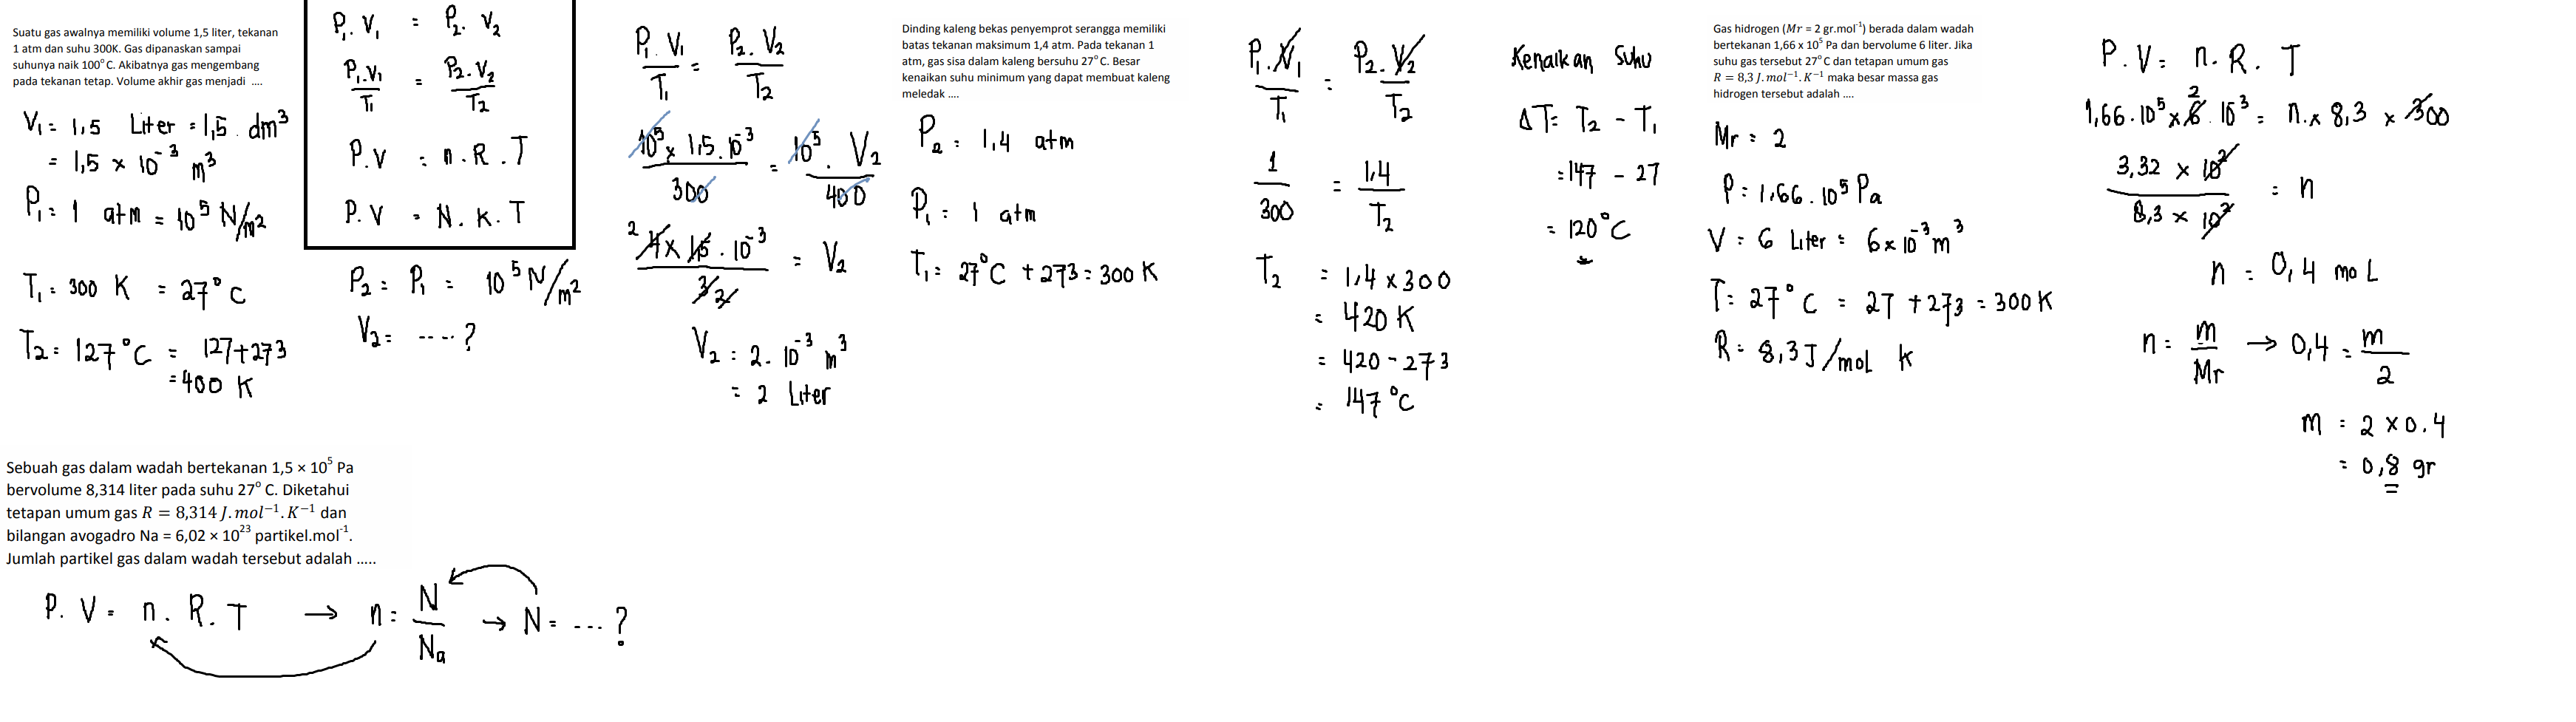 Suatu gas awalnya memiliki volume 1,5 liter, tekanan
1 atm dan suhu 300K. Gas dipanaskan sampai
suhunya naik 100° C. Akibatnya gas mengembang
pada tekanan tetap. Volume akhir gas menjadi ....
V₁ = 1,5 Liter = 1,5 . dm³
= 1,5 × 10⁻³ m³
P₁ = 1 atm = 10⁵ N/m²
T₁ = 300 K = 27°C
T₂ = 127°C = 127+273
= 400 K
P₁. V₁ = P₂. V₂
P₁.V₁/T₁ = P₂.V₂/T₂
P.V = n.R.T
P.V = N.K.T
P₂ = P₁ = 10⁵ N/m²
V₂ = ....?
P₁. V₁/T₁ = P₂. V₂/T₂
10⁵ × 1,5.10⁻³/300 = 10⁵. V₂/400
2 4 × 1,5 . 10⁻³/3 = V₂
V₂ = 2. 10⁻³ m³
= 2 Liter
Dinding kaleng bekas penyemprot serangga memiliki
batas tekanan maksimum 1,4 atm. Pada tekanan 1
atm, gas sisa dalam kaleng bersuhu 27° C. Besar
kenaikan suhu minimum yang dapat membuat kaleng
meledak ....
P₂ = 1,4 atm
P₁ = 1 atm
T₁ = 27°C + 273 = 300 K
P₁.V₁/T₁ = P₂.V₂/T₂
1/300 = 1,4/T₂
T₂ = 1,4 × 300
= 420 K
= 420 - 273
= 147°C
Kenaikan Suhu
ΔT = T₂ - T₁
= 147 - 27
= 120°C
Gas hidrogen (Mr = 2 gr.mol⁻¹) berada dalam wadah
bertekanan 1,66 x 10⁵ Pa dan bervolume 6 liter. Jika
suhu gas tersebut 27° C dan tetapan umum gas
R = 8,3 J.mol⁻¹.K⁻¹ maka besar massa gas
hidrogen tersebut adalah ....
Mr = 2
P = 1,66 . 10⁵ Pa
V = 6 Liter = 6×10⁻³ m³
T = 27°C = 27 + 273 = 300 K
R = 8,3 J/mol K
P. V = n. R. T
2
1,66.10⁵ × 6. 10⁻³ = n. × 8,3 × 300
3,32 × 10²/8,3 × 10² = n
n = 0,4 moL
n = m/Mr → 0,4 = m/2
m = 2 × 0.4
= 0,8 gr
Sebuah gas dalam wadah bertekanan 1,5 × 10⁵ Pa
bervolume 8,314 liter pada suhu 27° C. Diketahui
tetapan umum gas R = 8,314 J.mol⁻¹.K⁻¹ dan
bilangan avogadro Na = 6,02 × 10²³ partikel.mol⁻¹.
Jumlah partikel gas dalam wadah tersebut adalah .....
P. V = n. R. T → n = N/Na → N = ....?